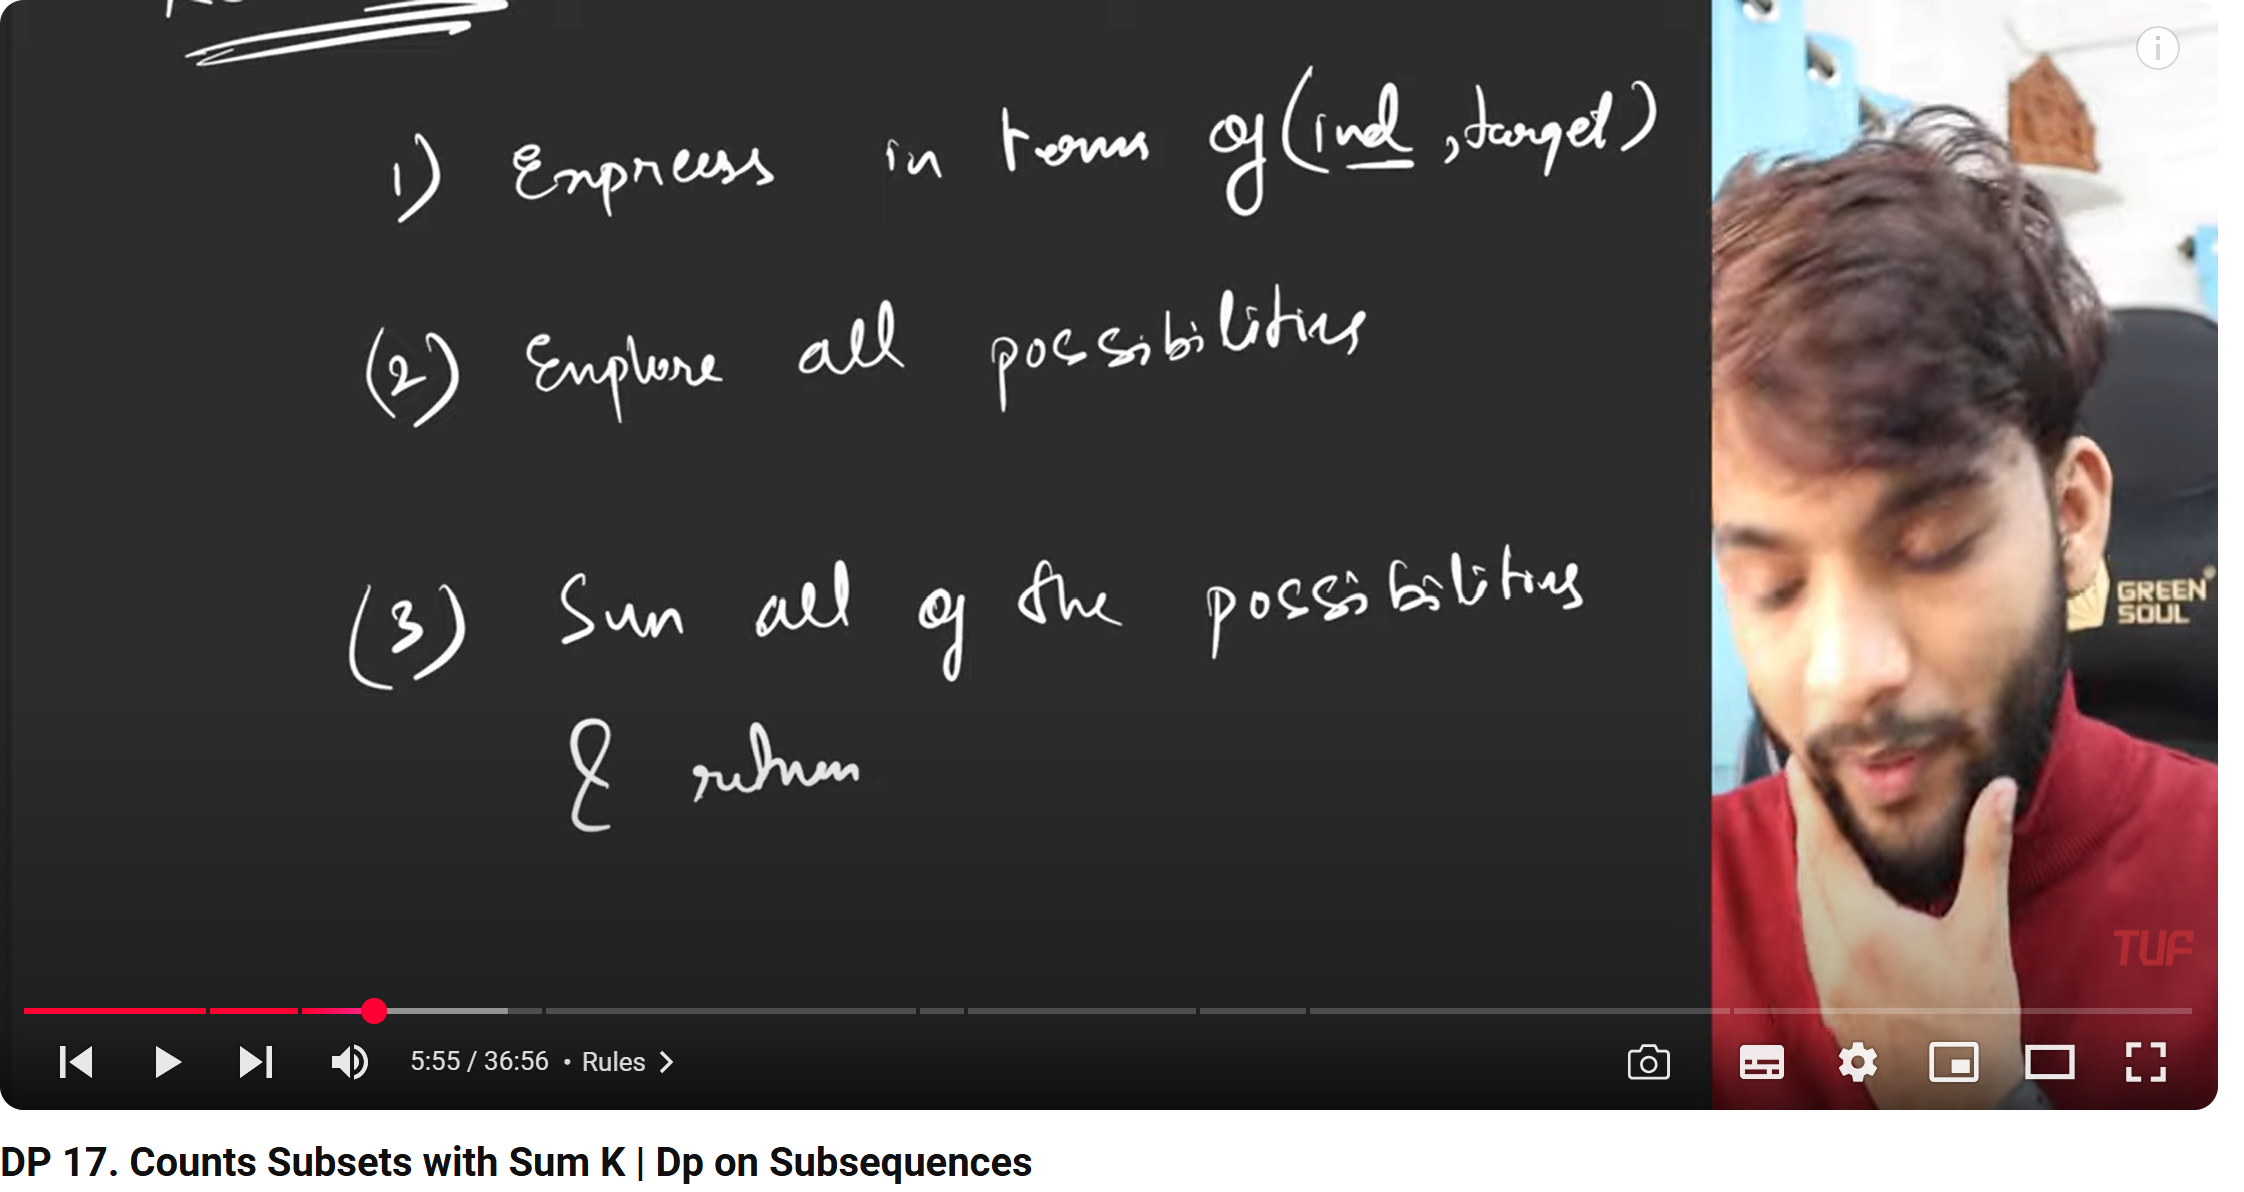 1) Express in terms of (ind, target)
(2) Explore all possibilities
(3) Sum all of the possibilities
& return
GREEN
SOUL
TUF
5:55 / 36:56 • Rules
DP 17. Counts Subsets with Sum K | Dp on Subsequences